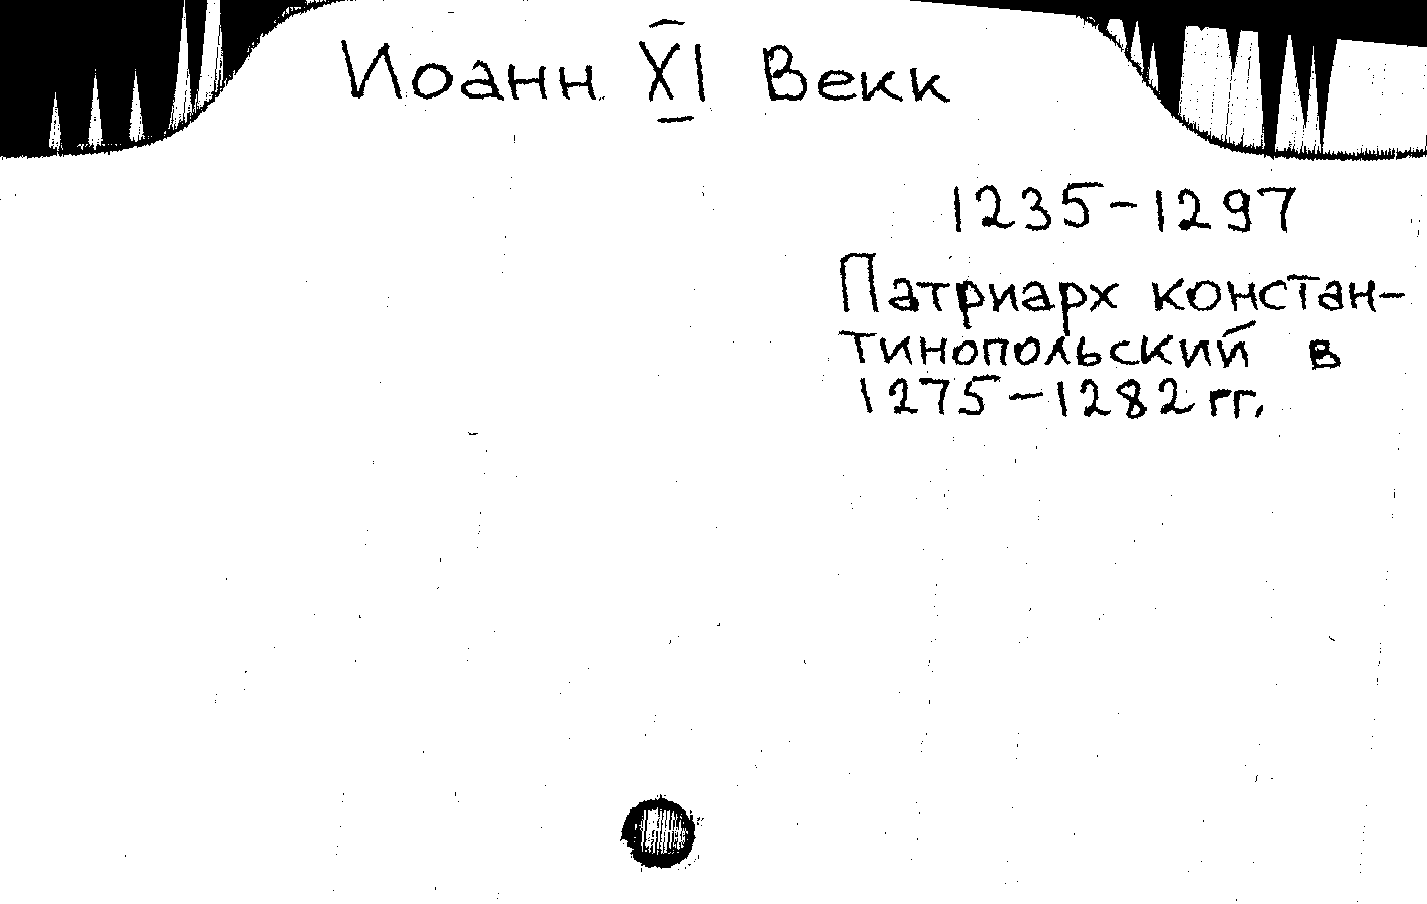 Иоанн XI Векк
1235-1297
Патриарх констан-
тинопольский в
1275-1282 гг.